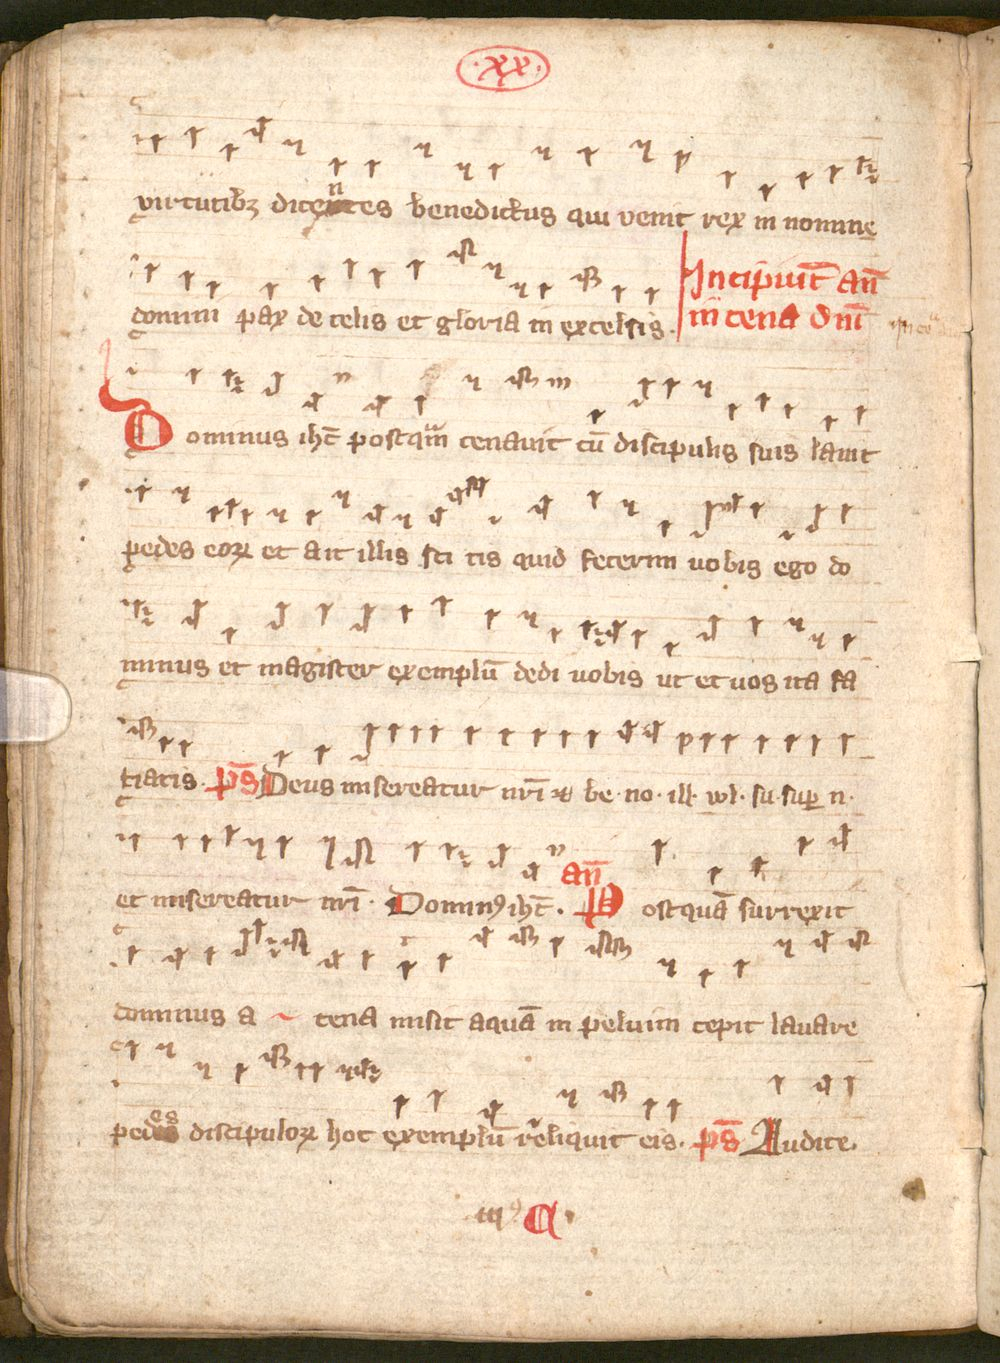 ·xx·
virtutibꝫ dicentes benedictus qui venit rex in nomine
domini pax de celis et gloria in excelsis.
Incipiūt an̄
in cena dn̄i
Dominus ihc̄ postqᵃm cenavit cū discipulis suis lavit
pedes eoꝝ et ait illis sci tis quid fecerim uobis ego do
minus et magister exemplū dedi uobis ut et uos ita fa
tiatis. ps̄ Deus misereatur nr̄i ⁊ be· no· ill· vul· su· suꝑ n·
et misereatur nr̄i · Dominꝰ ihc̄. an̄ Postquā surrexit
dominus a cena misit aquā in peluim cepit lavare
pedes discipuloꝝ hoc exemplū reliquit eis. ps̄ Audite.
iijꝰ a·